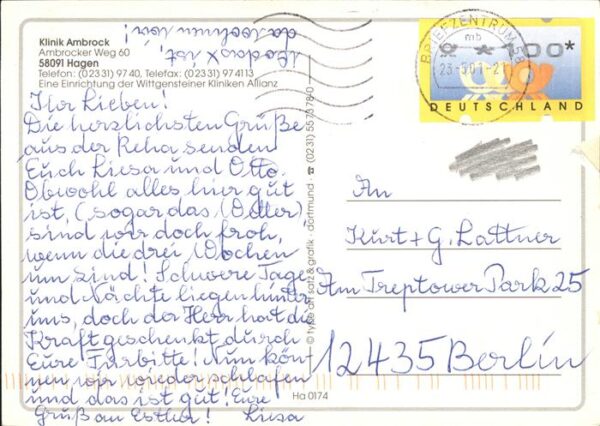 Klinik Ambrock
Ambrocker Weg 60
58091 Hagen
Telefon: (02331) 9740, Telefax: (02331) 974113
Eine Einrichtung der Wittgensteiner Kliniken Allianz
Wo das X ist,
da wohnen wir!
Ihr Lieben!
Die herzlichsten Grüße
aus der Reha senden
Euch Liesa und Otto.
Obwohl alles hier gut
ist, (sogar das Wetter),
sind wir doch froh,
wenn die drei Wochen
um sind! Schwere Tage
und Nächte liegen hinter
uns, doch der Herr hat die
Kraft geschenkt durch
Eure Fürbitte! Nun kön-
nen wir wieder schlafen
und das ist gut! Eure
Gruß an Esther! Liesa
© type art satz & grafik · dortmund · ☎ (0231) 5573780
Ha 0174
BRIEFZENTRUM 58
mb
*100*
DEUTSCHLAND
An
Kurt + G. Lattner
Am Treptower Park 25
12435 Berlin